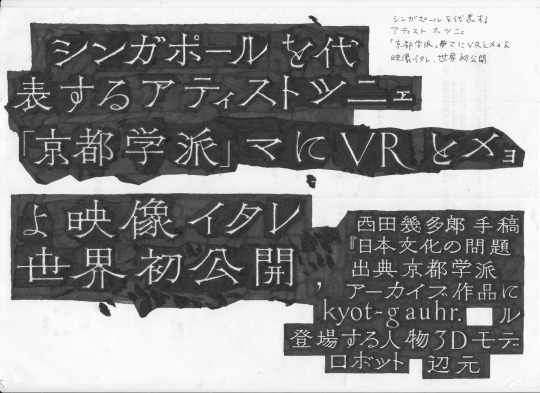 シンガポールを代表する
アティスト ホ ツニェ
映像イタレ、世界初公開
シンガポールを代
表するアティストツニェ
「京都学派」マにVRとメョ
よ映像イタレ
世界初公開
西田幾多郎 手稿
『日本文化の問題
出典 京都学派
，アーカイブ 作品に
kyot-gauhr. ル
登場する人物3Dモデ
ロボット 辺元